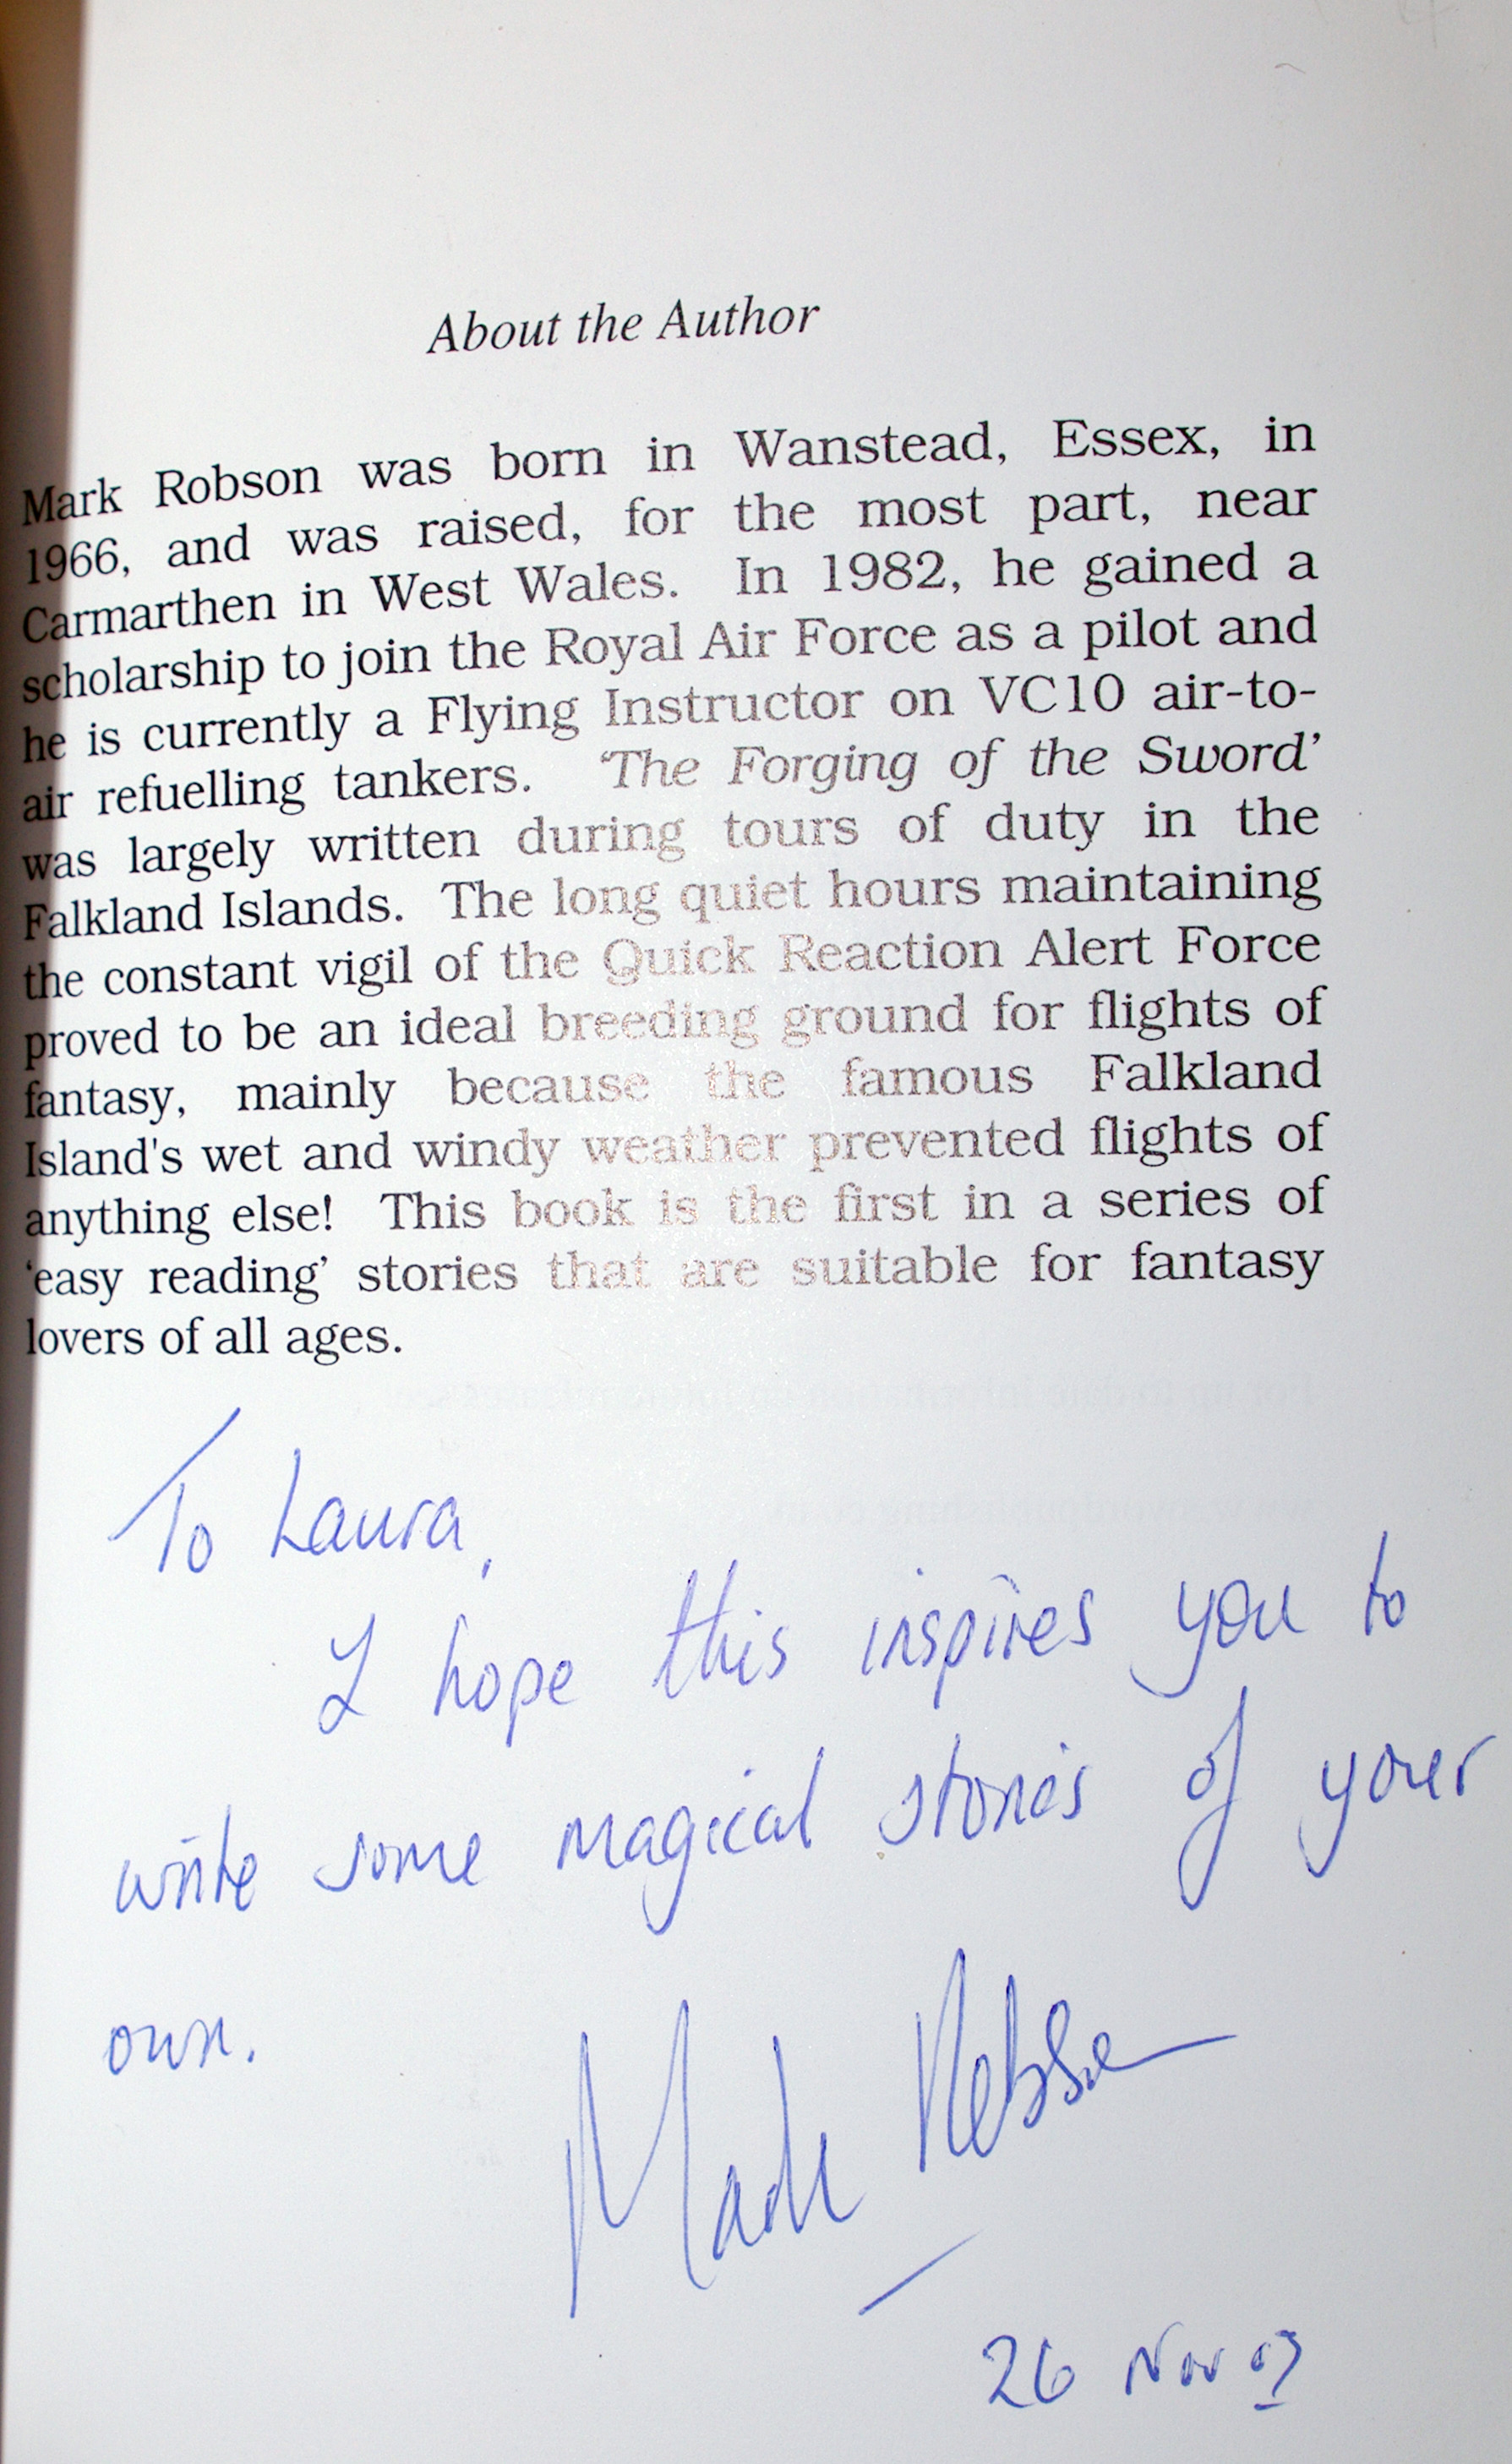 About the Author
Mark Robson was born in Wanstead, Essex, in
1966, and was raised, for the most part, near
Carmarthen in West Wales. In 1982, he gained a
scholarship to join the Royal Air Force as a pilot and
he is currently a Flying Instructor on VC10 air-to-
air refuelling tankers. ‘The Forging of the Sword’
was largely written during tours of duty in the
Falkland Islands. The long quiet hours maintaining
the constant vigil of the Quick Reaction Alert Force
proved to be an ideal breeding ground for flights of
fantasy, mainly because the famous Falkland
Island's wet and windy weather prevented flights of
anything else! This book is the first in a series of
‘easy reading’ stories that are suitable for fantasy
lovers of all ages.
To Laura,
I hope this inspires you to
write some magical stories of your
own.
Mark Robson
26 Nov 03